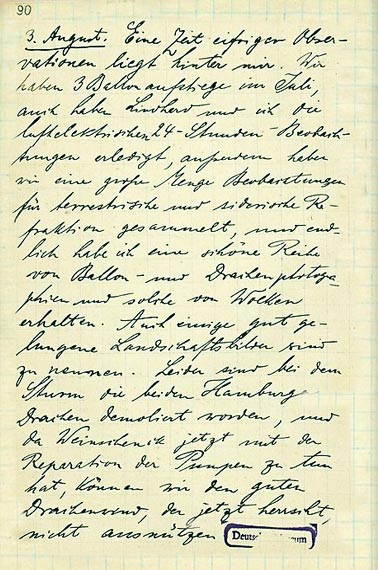 90
3. August. Eine Zeit eifriger Obser-
vationen liegt hinter mir. Wir
haben 3 Ballonaufstiege im Juli,
auch haben Lindhard und ich die
luftelektrischen 24-Stunden-Beobach-
tungen erledigt, ausserdem haben
wir eine große Menge Beobachtungen
für terrestrische und siderische Re-
fraktion gesammelt, und end-
lich habe ich eine schöne Reihe
von Ballon- und Drachenphotogra-
phien und solche von Wolken
erhalten. Auch einige gut ge-
lungene Landschaftsbilder sind
zu nennen. Leider sind bei dem
Sturm die beiden Hamburger
Drachen demoliert worden, und
da Weinschenk jetzt mit der
Reparation der Pumpen zu tun
hat, können wir den guten
Drachenwind, der jetzt herrscht,
nicht ausnützen